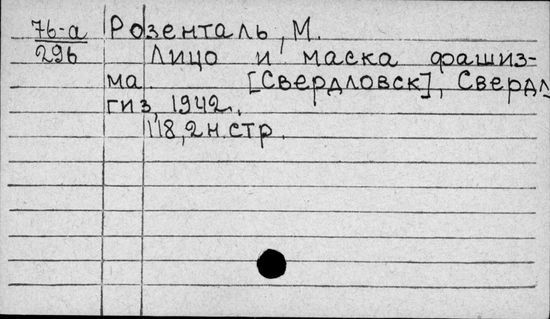 76-а Розенталь, М.
296 Лицо и маска фашиз-
ма. [Свердловск], Свердл
гиз, 1942.
118, 2 н. стр.